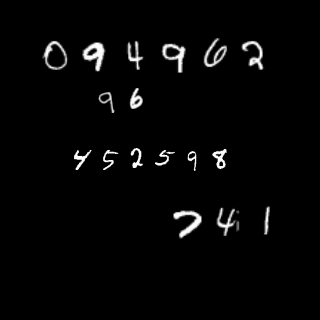 094962
96
452598
741